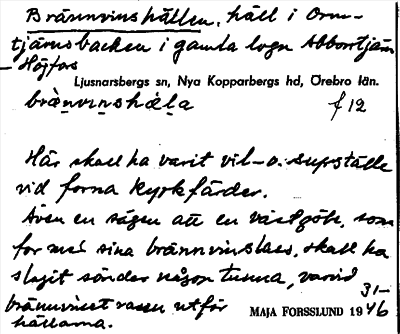 Brännvinshällen, häll i Orm-
tjärnsbacken i gamla logn Abborrtjärn
– Högfors
Ljusnarsbergs sn, Nya Kopparbergs hd, Örebro län.
brän̩vin̩shäl̩a f 12
Här skall ha varit vil- o. supställe
vid forna kyrkfärder.
Även en sägen att en västgöte, som
for med sina brännvinslass, skall ha
slagit sönder någon tunna, varvid
brännvinet rann utför
hällarna.
31-
MAJA FORSSLUND 1946